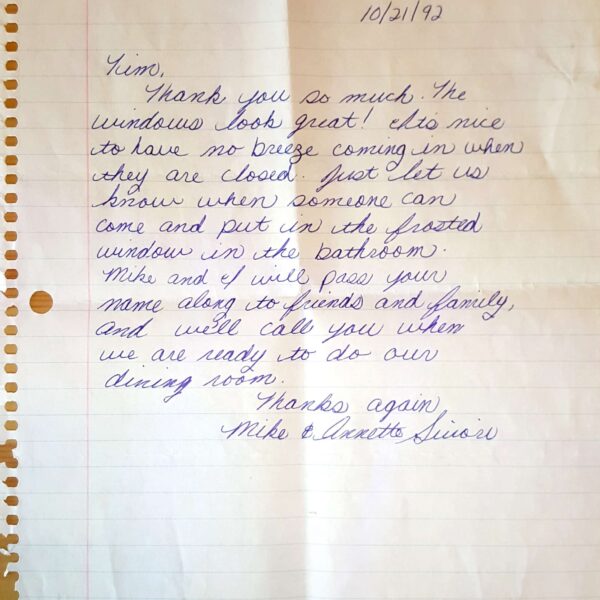 10/21/92
Kim,
Thank you so much. The
windows look great! It's nice
to have no breeze coming in when
they are closed. Just let us
know when someone can
come and put in the frosted
window in the bathroom.
Mike and I will pass your
name along to friends and family,
and we'll call you when
we are ready to do our
dining room.
Thanks again
Mike & Annette